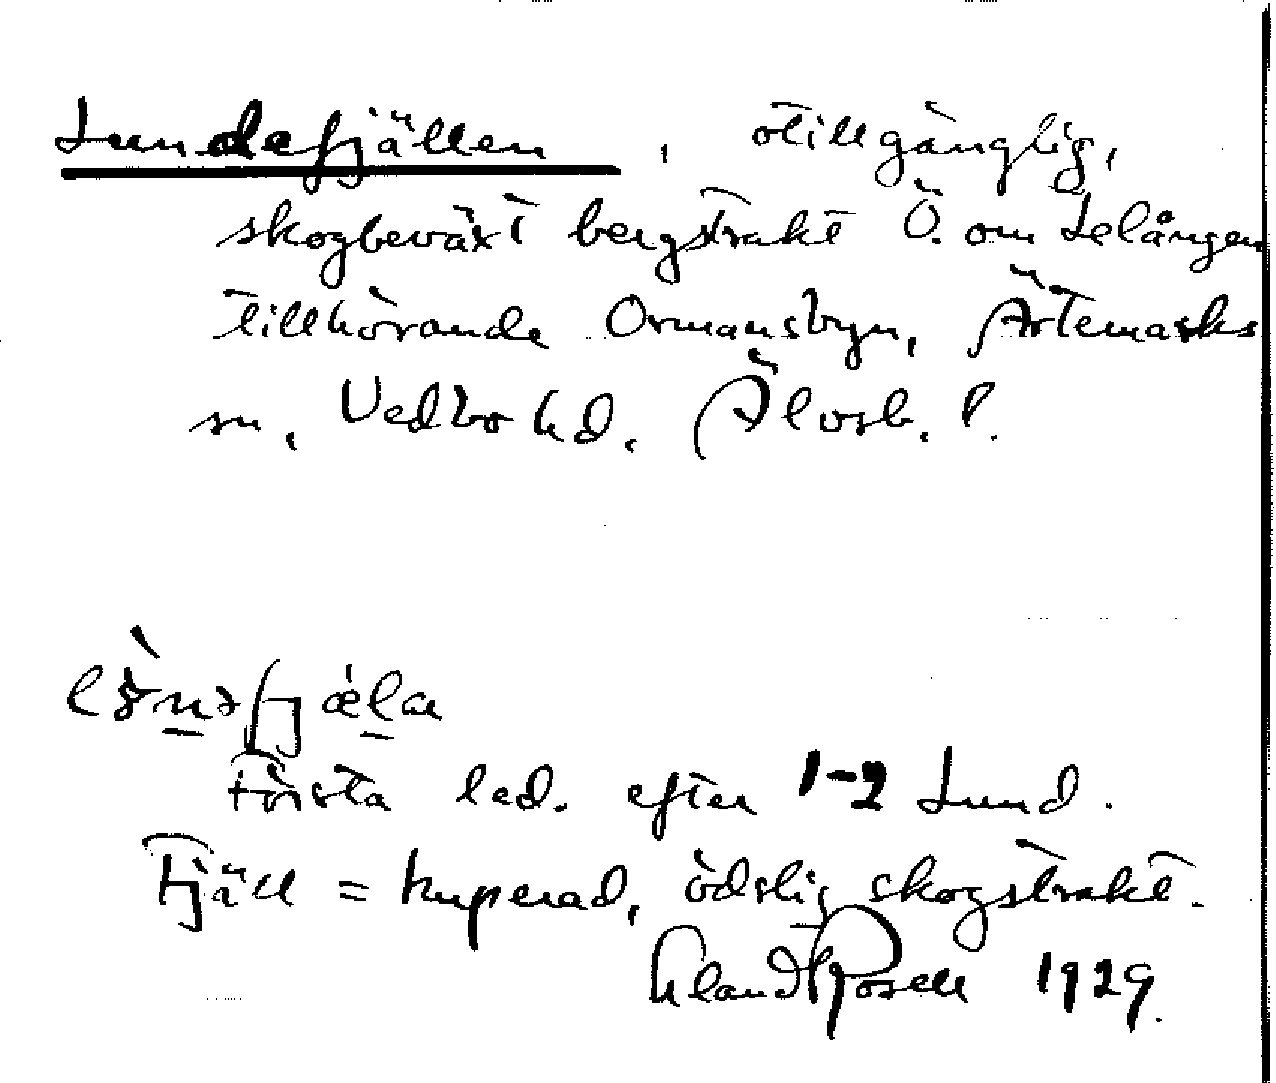 Lundefjällen, otillgänglig,
skogbeväxt bergstrakt Ö. om Lelången
tillhörande Ormansbyn, Ärtemarks
sn, Vedbo hd. Älvsb. l.
Första led. efter 1-2 Lund.
Fjäll = kuperad, ödslig skogstrakt.
Erland Rosell 1929.